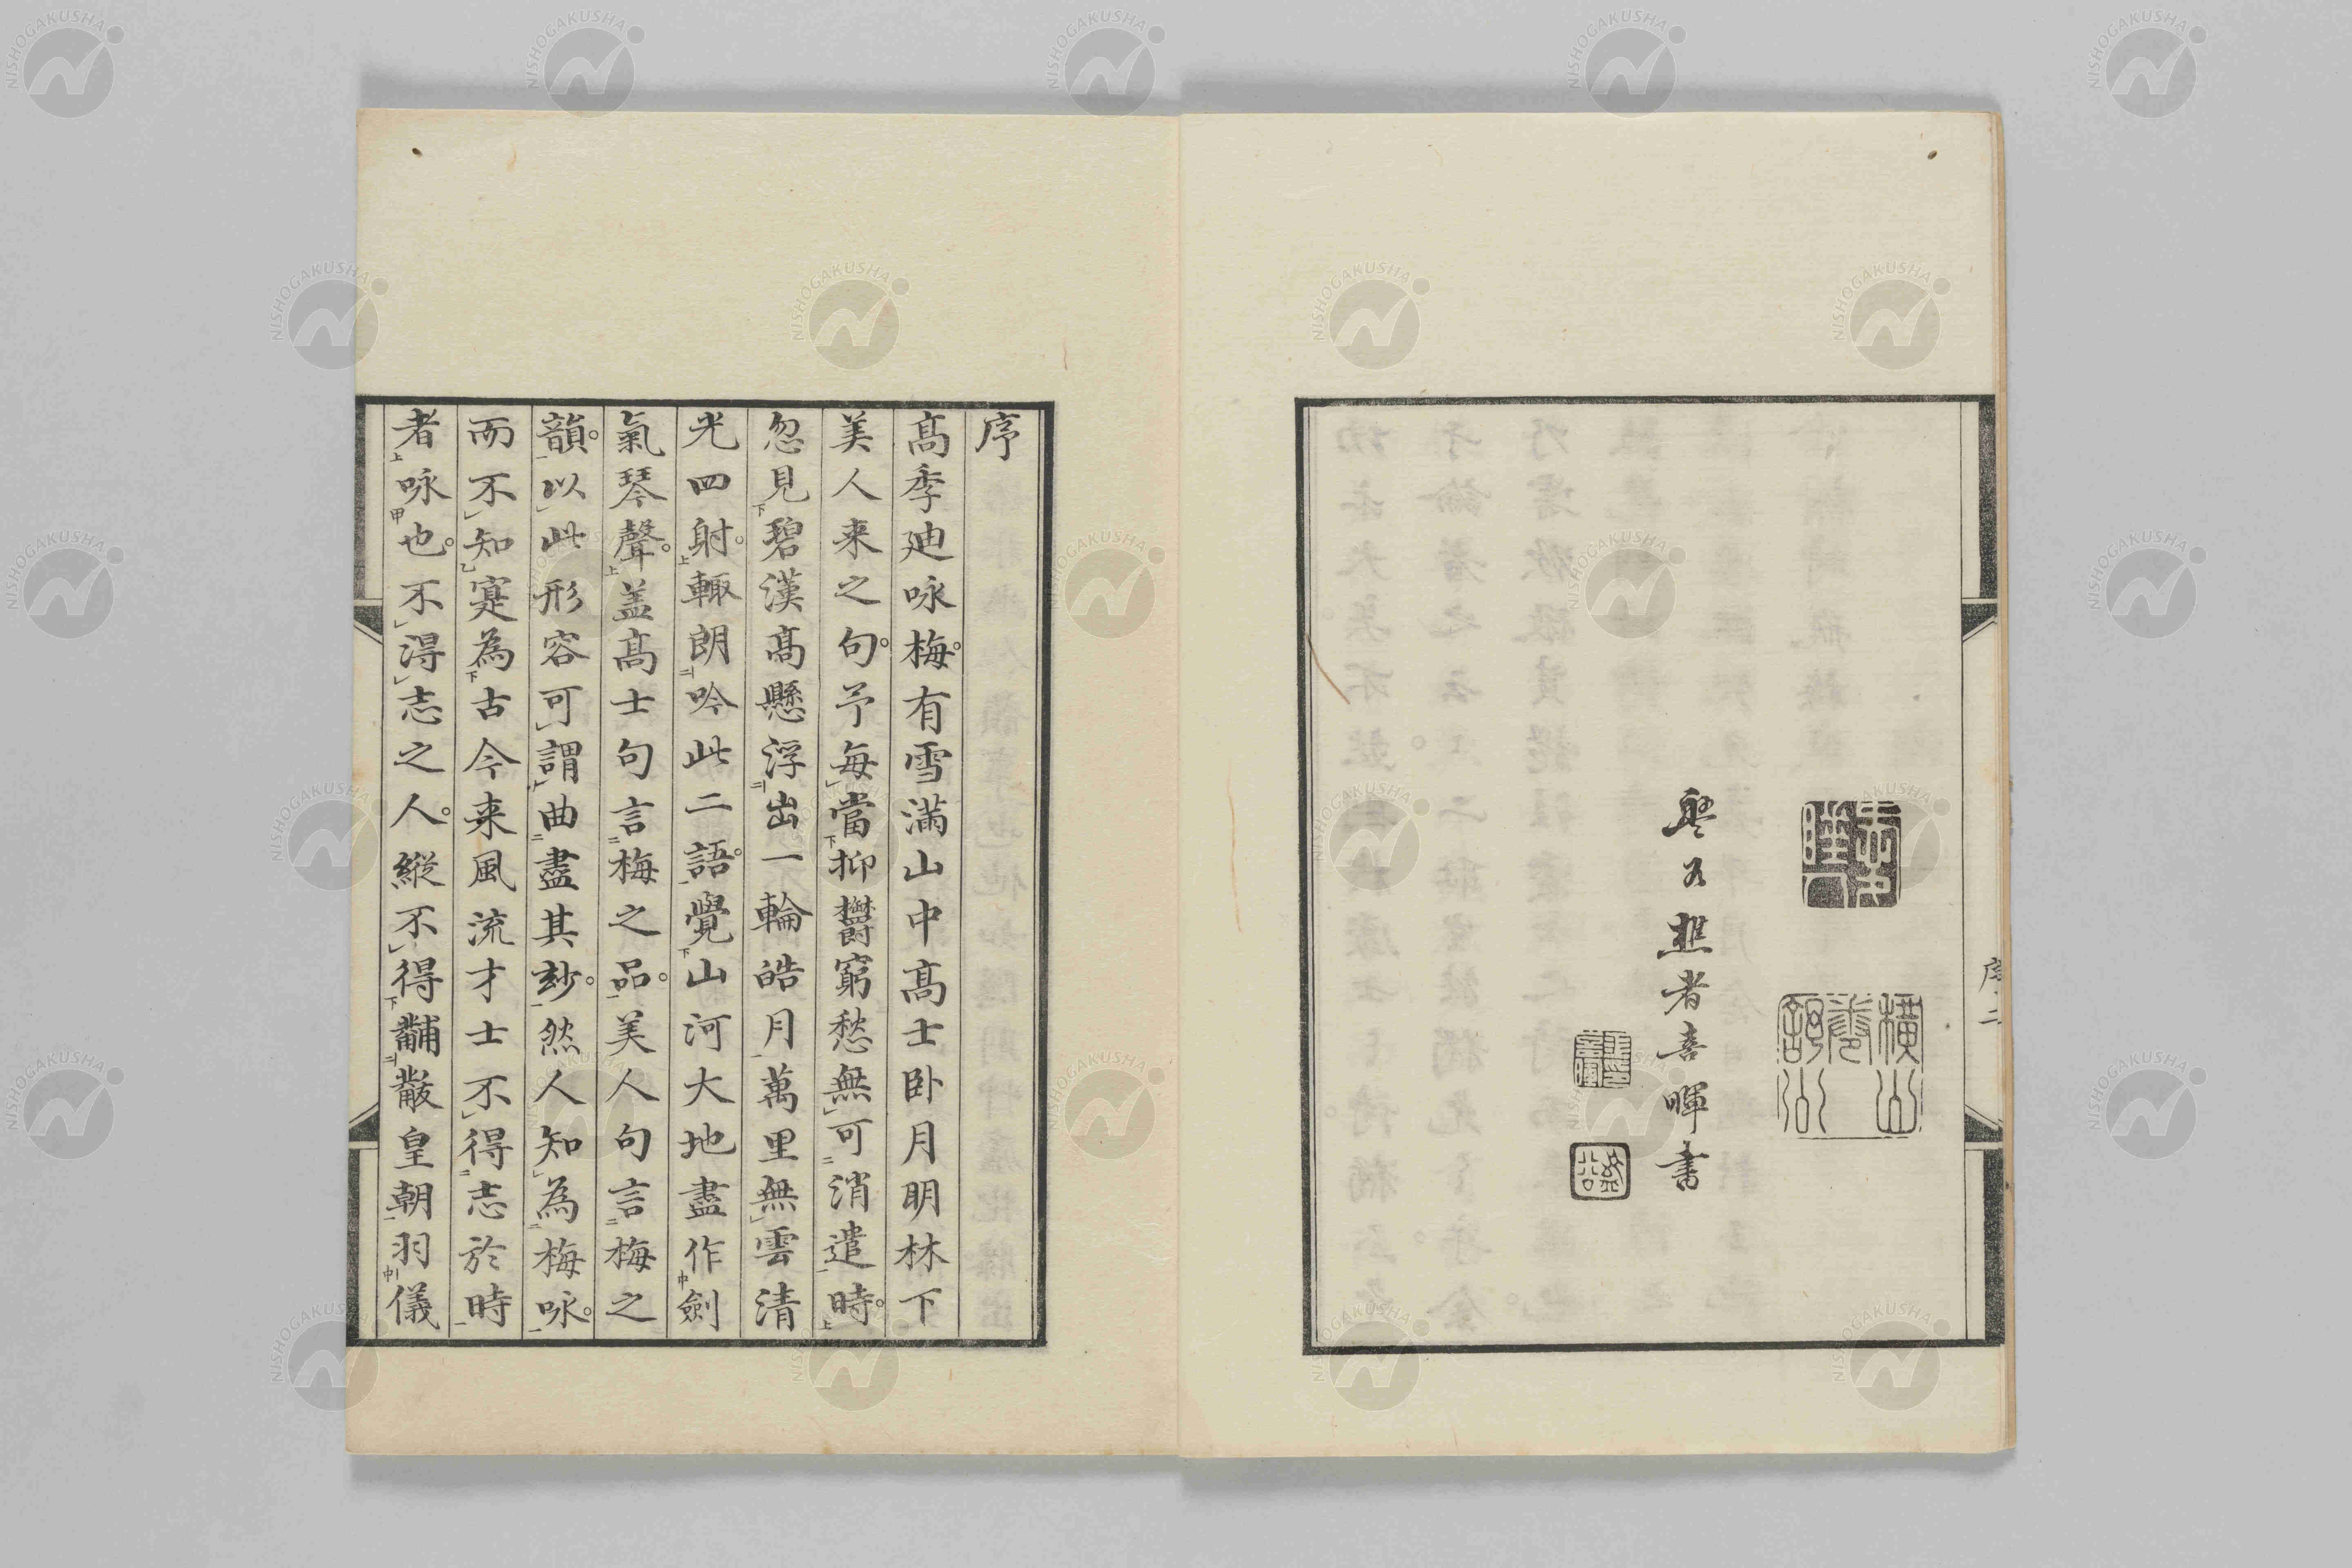 横山
卷
詔公
盤谷樵者喜暉書
序二
序
高季廸咏梅。有雪滿山中高士卧月明林下
美人来之句。予每當抑欝窮愁無可消遣時。
忽見碧漢高懸浮出一輪皓月萬里無雲清
光四射。輙朗吟此二語。覺山河大地盡作劍
氣琴聲。盖高士句言梅之品。美人句言梅之
韻。以此形容可謂曲盡其玅。然人知為梅咏。
而不知寔為古今来風流才士不得志於時
者咏也。不淂志之人。縱不得黼黻皇朝羽儀
NISHOGAKUSHA